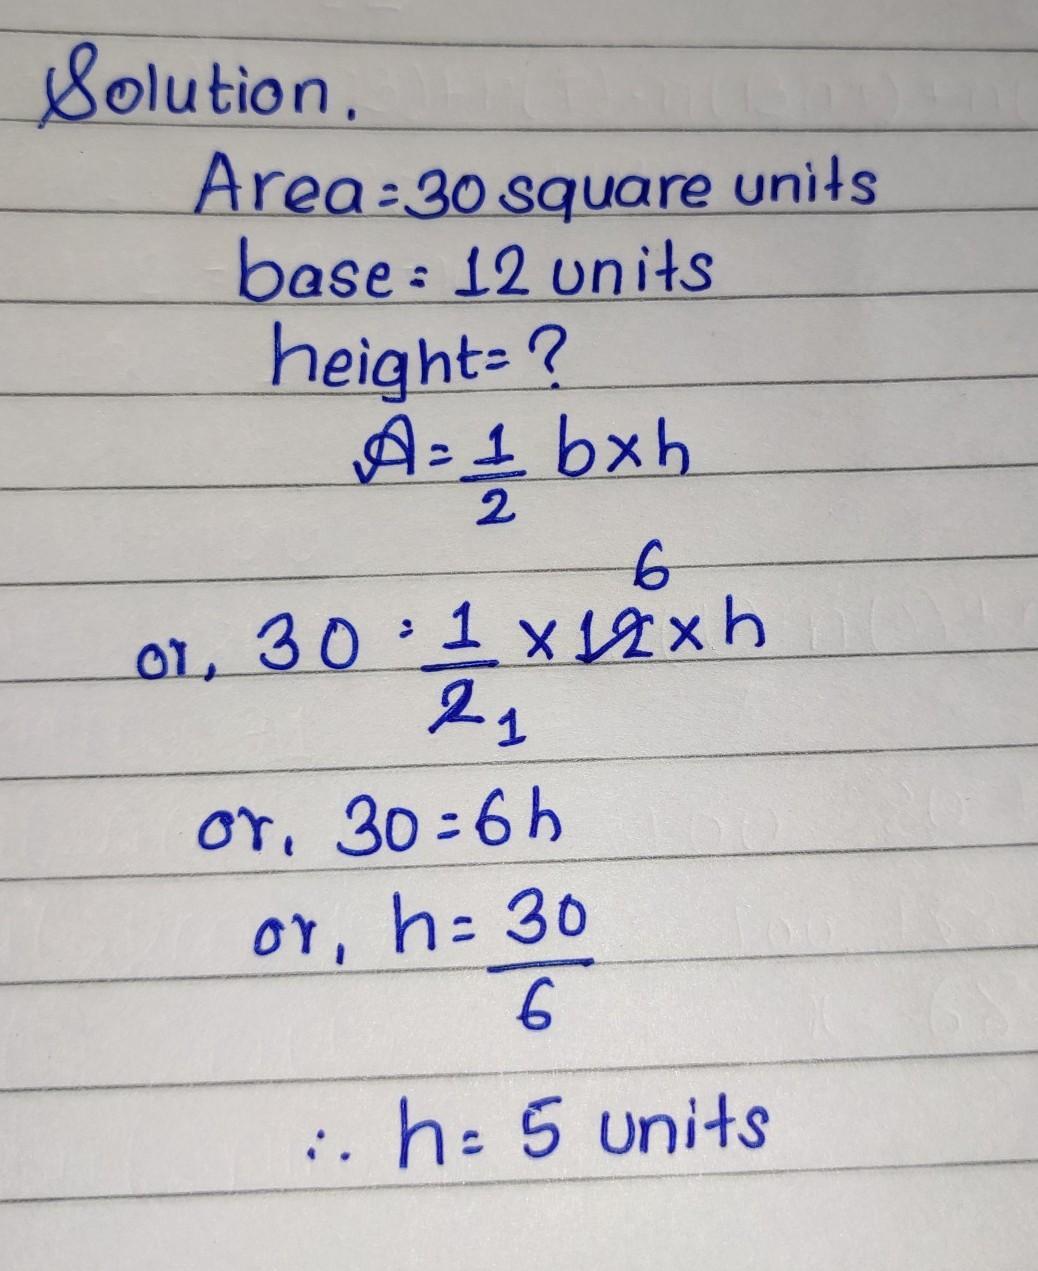 Solution.
Area=30 square units
base= 12 units
height=?
A= 1/2 b×h
or, 30 = 1/2 1 × 12 6 × h
or, 30=6h
or, h= 30/6
∴ h= 5 units